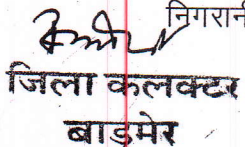 निगरानी
जिला कलक्टर
बाड़मेर